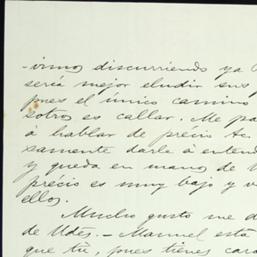 -irnos discurriendo ya
sería mejor eludir sus
pues el único camino
sotros es callar. Me pa
á hablar de précio
samente darle á entend
y queda en manos de
précio es muy bajo y v
ellos.
Mucho gusto me d
de Udes. – Manuel está
que tú, pues tienes cara